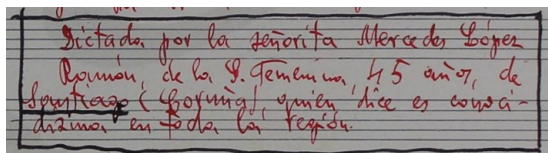 Dictada por la señorita Mercedes López
Román, de la S. Femenina, 45 años, de
Santiago (Coruña), quien dice es conoci-
dísima en toda la región.